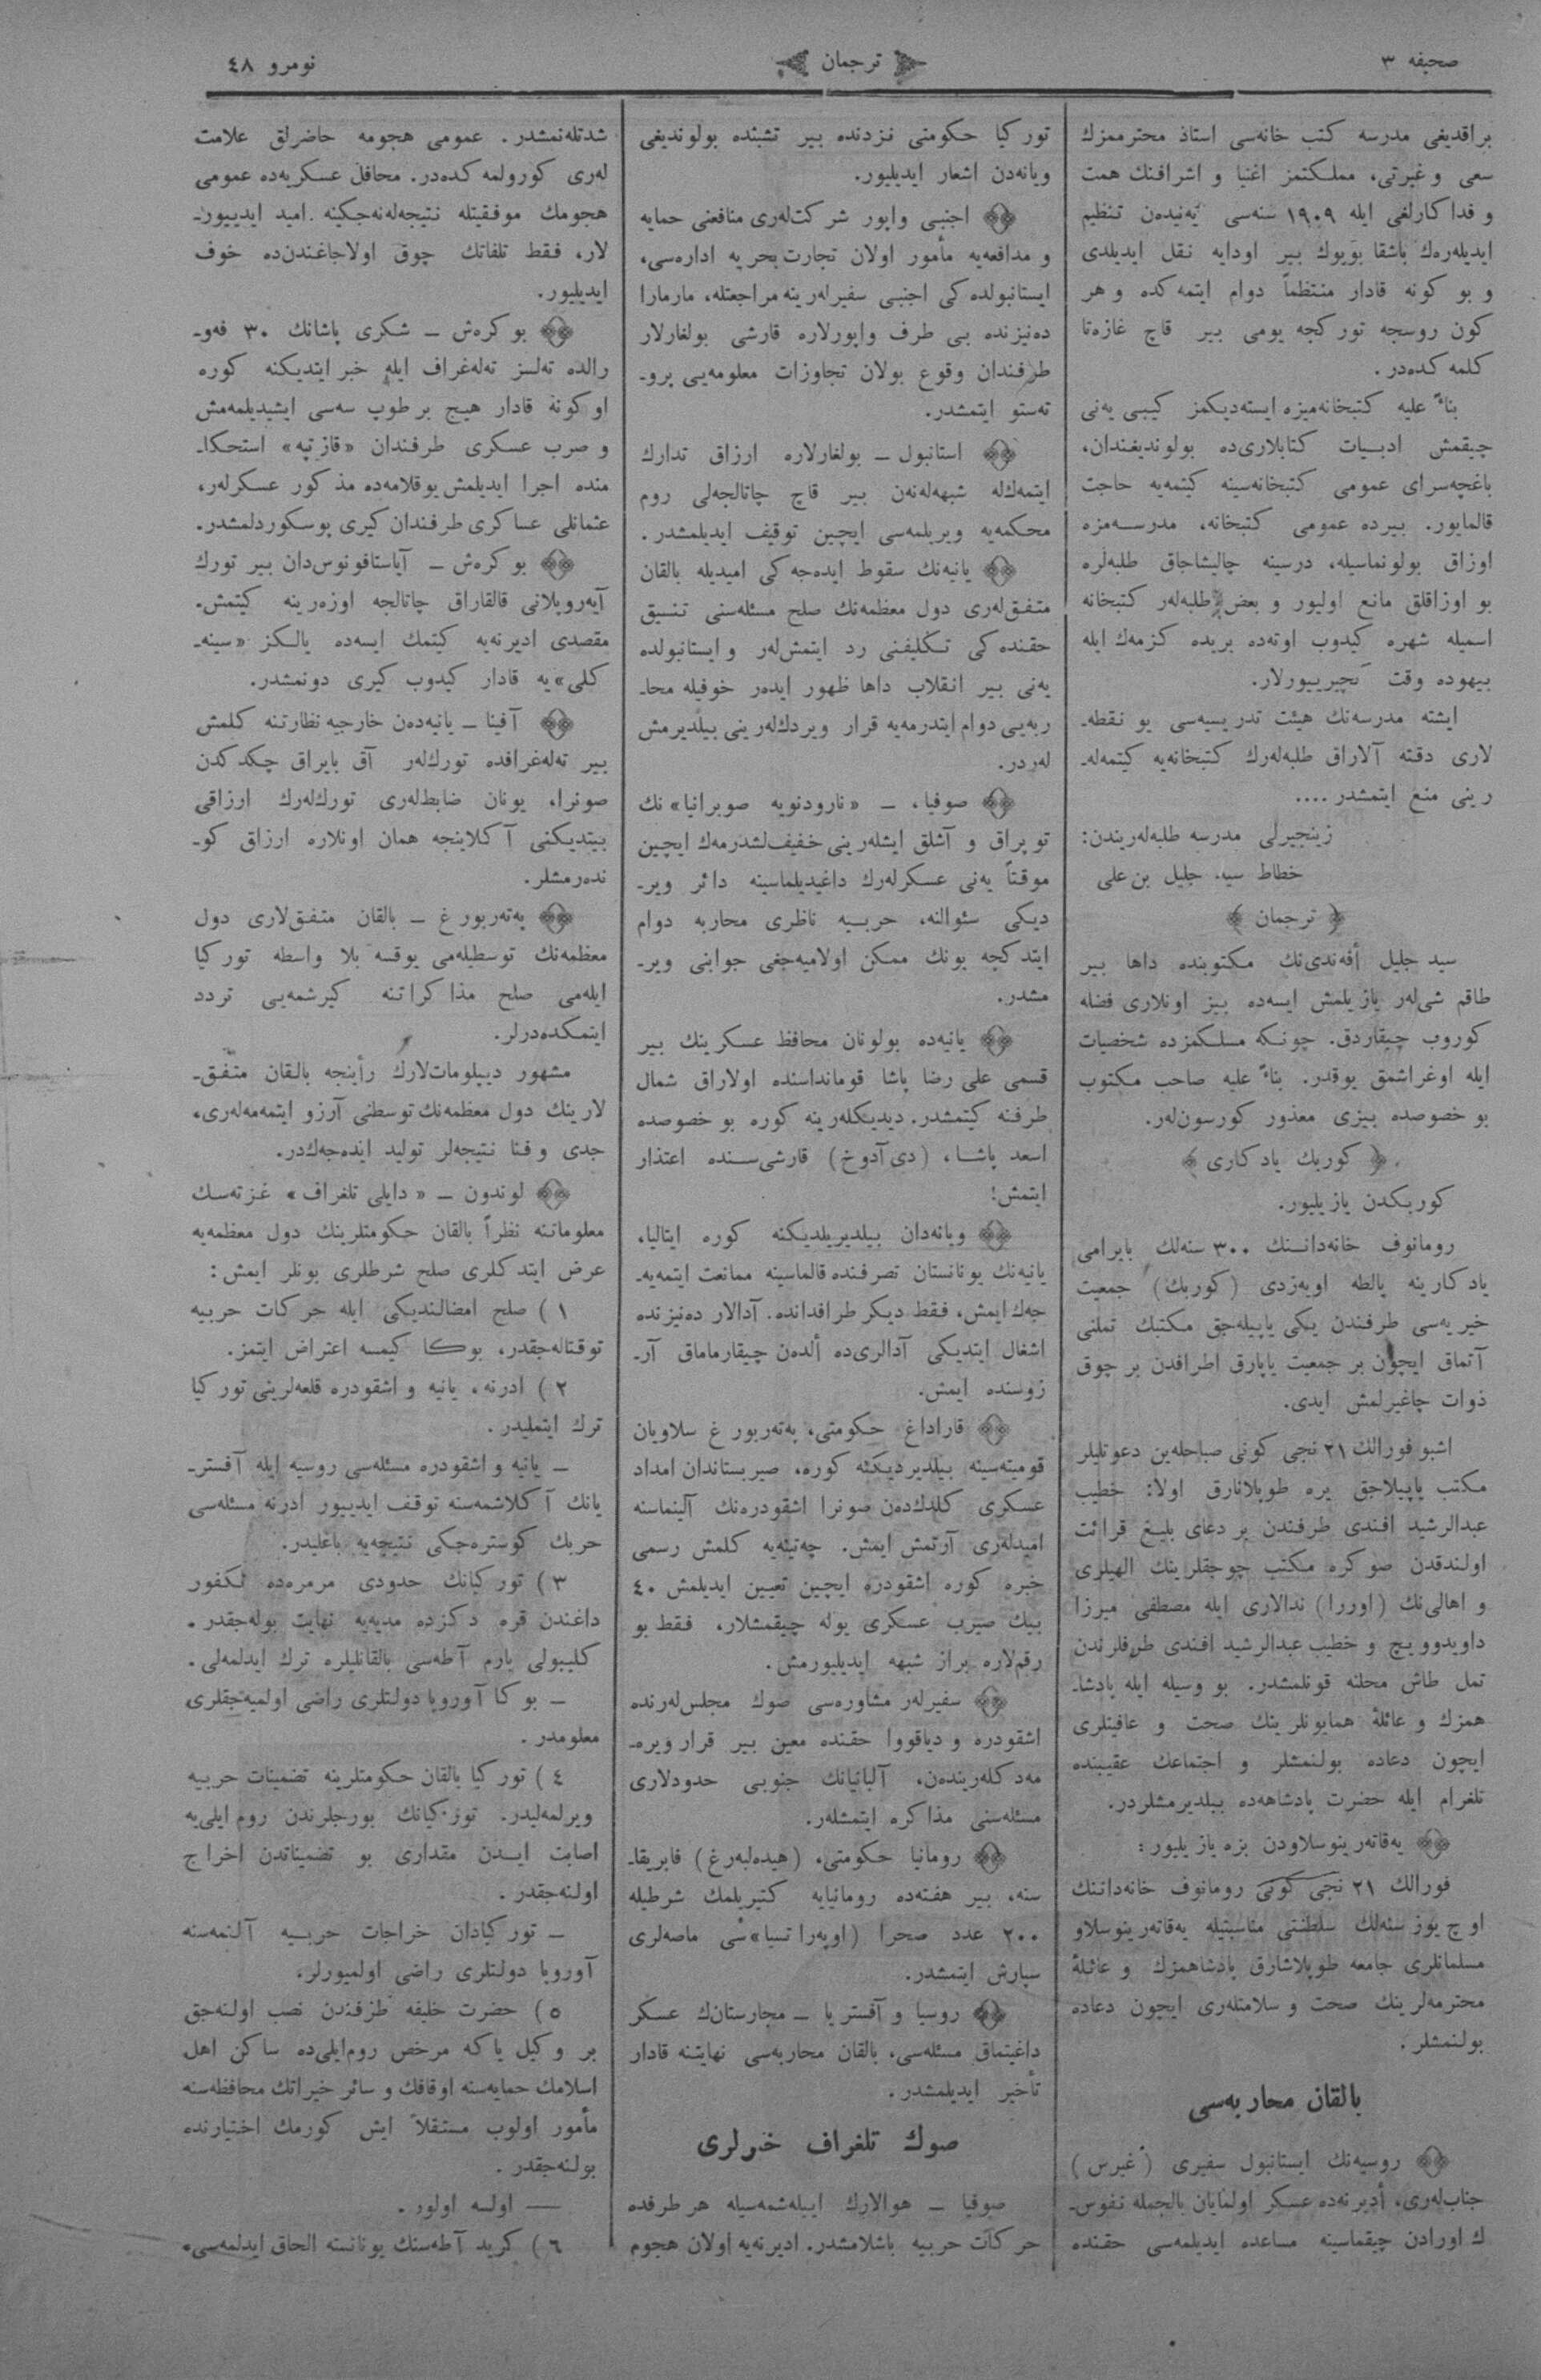 صحیفه ۳
ترجمان
نومرو ٤٨
براقدیغی مدرسه كتب خانه‌سی استاذ محترممزك
سعی و غیرتی، مملكتمز اغنیا و اشرافنك همت
و فداكارلغی ایله ۱۹۰۹ سنه‌سی یه‌نیدن تنظیم
ایدیله‌رەك باشقا بویوك بیر اودایه نقل ایدیلدی
و بو كونه قادار منتظماً دوام ایتمه‌كده و هر
كون روسجه توركجه یومی بیر قاچ غازه‌تا
كلمه كده‌در.
بناءً علیه كتبخانه‌میزه ایسته‌دیكمز كیبی یه‌نی
چیقمش ادبیات كتابلاری‌ده بولوندیغندان،
باغچه‌سرای عمومی كتبخانه‌سینه كیتمه‌یه حاجت
قالمایور. بیرده عمومی كتبخانه، مدرسه‌مزه
اوزاق بولونماسیله، درسینه چالیشاجاق طلبه‌لره
بو اوزاقلق مانع اولیور و بعض طلبه‌لەر كتبخانه
اسمیله شهره كیدوب اوته‌ده بریده كزمه‌ك ایله
بیهوده وقت كچیرییورلار.
ایشته مدرسه‌نك هیئت تدریسیه‌سی بو نقطه‌ـ
لاری دقته آلاراق طلبه‌لەرك كتبخانه‌یه كیتمه‌لەـ
رینی منع ایتمشدر....
زینجیرلی مدرسه طلبه‌لەریندن:
خطاط سید جلیل بن علی
﴿ ترجمان ﴾
سید جلیل أفه‌ندی‌نك مكتوبنده داها بیر
طاقم شی‌لەر یازیلمش ایسه‌ده بیز اونلاری فضله
كوروب چیقاردق. چونكه مسلكمزده شخصیات
ایله اوغراشمق یوقدر. بناءً علیه صاحب مكتوب
بو خصوصده بیزی معذور كورسون‌لەر.
﴿ كوربك یادكاری ﴾
كوربكدن یازیلیور.
رومانوف خانه‌داننك ۳۰۰ سنه‌لك بایرامی
یادكارینه یالطه اویه‌زدی (كوربك) جمعیت
خیریه‌سی طرفندن یكی یاپیله‌جق مكتبك تملنی
آتماق ایچون بر جمعیت یاپارق اطرافدن بر چوق
ذوات چاغیرلمش ایدی.
اشبو فورالك ۲۱ نجی كونی صباحله‌ین دعوتلیلر
مكتب یاپیلاجق یره طوپلانارق اولا: خطیب
عبدالرشید افندی طرفندن بر دعای بلیغ قرائت
اولندقدن صوكره مكتب چوجقلرینك الهیلری
و اهالی‌نك (اوررا) ندالاری ایله مصطفی میرزا
داویدوویچ و خطیب عبدالرشید افندی طرفلرندن
تمل طاش محلنه قونلمشدر. بو وسیله ایله پادشاـ
همزك و عائلهٔ همایونلرینك صحت و عافیتلری
ایچون دعاده بولنمشلر و اجتماعك عقیبنده
تلغرام ایله حضرت پادشاهه‌ده بیلدیرمشلردر.
یه‌قاتەرینوسلاودن بزه یازیلیور:
فورالك ۲۱ نجی كونی رومانوف خانه‌داننك
اوچ یوز سنه‌لك سلطنتی مناسبتیله یه‌قاتەرینوسلاو
مسلمانلری جامعه طوپلاشارق پادشاهمزك و عائلهٔ
محترمه‌لرینك صحت و سلامتلەری ایچون دعاده
بولنمشلر.
بالقان محاربه‌سی
روسیه‌نك ایستانبول سفیری (غیرس)
جناب‌لەری، أدیرنه‌ده عسكر اولمایان بالجمله نفوسـ
ك اورادن چیقماسینه مساعده ایدیلمه‌سی حقنده
توركیا حكومتی نزدنده بیر تشبثده بولوندیغی
ویانه‌دن اشعار ایدیلیور.
اجنبی واپور شركت‌لەری منافعنی حمایه
و مدافعه‌یه مأمور اولان تجارت بحریه اداره‌سی،
ایستانبولده‌كی اجنبی سفیرلەرینه مراجعتله، مارمارا
ده‌نیزنده بی طرف واپورلاره قارشی بولغارلار
طرفندان وقوع بولان تجاوزات معلومه‌یی پروـ
ته‌ستو ایتمشدر.
استانبول ـ بولغارلاره ارزاق تدارك
ایتمه‌كله شبهه‌لەنه‌ن بیر قاچ چاتالجه‌لی روم
محكمه‌یه ویریلمه‌سی ایچین توقیف ایدیلمشدر.
یانیه‌نك سقوط ایده‌جه‌كی امیدیله بالقان
متفق‌لەری دول معظمه‌نك صلح مسئله‌سنی تنسیق
حقنده‌كی تكلیفنی رد ایتمش‌لەر و ایستانبولده
یه‌نی بیر انقلاب داها ظهور ایده‌ر خوفیله محاـ
ربه‌یی دوام ایتدرمه‌یه قرار ویردك‌لەرینی بیلدیرمش
لەردر.
صوفیا، ـ «نارودنویه صوبرانیا»نك
توپراق و آشلق ایشلەرینی خفیف‌لشدرمه‌ك ایچین
موقتاً یه‌نی عسكرلەرك داغیدیلماسینه دائر ویرـ
دیكی سئوالنه، حربیه ناظری محاربه دوام
ایتدكجه بونك ممكن اولامیه‌جغی جوابنی ویرـ
مشدر.
یانیه‌ده بولونان محافظ عسكرینك بیر
قسمی علی رضا پاشا قوماندا‌سنده اولاراق شمال
طرفنه كیتمشدر. دیدیكلەرینه كوره بو خصوصده
اسعد پاشا، (دی‌آدوخ) قارشی‌سنده اعتذار
ایتمش!
ویانه‌دان بیلدیریلدیكنه كوره ایتالیا،
یانیه‌نك یونانستان تصرفنده قالماسینه ممانعت ایتمه‌یه‌ـ
جه‌ك ایمش، فقط دیكر طرافدانده. آدالار ده‌نیزنده
اشغال ایتدیكی آدالری‌ده ألده‌ن چیقارماماق آرـ
زوسنده ایمش.
قاراداغ حكومتی، په‌تەربورغ سلاویان
قومیته‌سینه بیلدیردیكنه كوره، صیربستاندان امداد
عسكری كلدك‌ده‌ن صونرا اشقودره‌نك آلینماسنه
امیدلەری آرتمش ایمش. چه‌تینه‌یه كلمش رسمی
خبره كوره اشقودره ایچین تعیین ایدیلمش ٤٠
بیك صیرب عسكری یوله چیقمشلار، فقط بو
رقم‌لاره براز شبهه ایدیلیورمش.
سفیرلەر مشاوره‌سی صوك مجلس‌لەرنده
اشقودره و دیاقووا حقنده معین بیر قرار ویره‌ـ
مه‌دكلەریندەن، آلبانیانك جنوبی حدودلاری
مسئله‌سنی مذاكره ایتمشلەر.
رومانیا حكومتی، (هیده‌لبه‌رغ) فابریقاـ
سنه، بیر هفته‌ده رومانیایه كتیریلمك شرطیله
۲۰۰ عدد صحرا (اوپه‌راتسیا»سی ماصه‌لری
سپارش ایتمشدر.
روسیا و آفستریا ـ مجارستان‌ك عسكر
داغیتماق مسئله‌سی، بالقان محاربه‌سی نهایتنه قادار
تأخیر ایدیلمشدر.
صوك تلغراف خبرلری
صوفیا ـ هوالارك اییله‌شمه‌سیله هر طرفده
حركات حربیه باشلامشدر. ادیرنه‌یه اولان هجوم
شدتله‌نمشدر. عمومی هجومه حاضرلق علامت
لەری كورولمه كده‌در. محافل عسكریه‌ده عمومی
هجومك موفقیتله نتیجه‌لەنه‌جكینه امید ایدییورـ
لار، فقط تلفاتك چوق اولاجاغندن‌ده خوف
ایدیلیور.
بوكره‌ش ـ شكری پاشانك ۳۰ فه‌وـ
رالده ته‌لسز ته‌لەغراف ایله خبر ایتدیكنه كوره
او كونه قادار هیچ بر طوپ سه‌سی ایشیدیلمه‌مش
و صرب عسكری طرفندان «قازتپه» استحكاـ
منده اجرا ایدیلمش یوقلامه‌ده مذكور عسكرلەر،
عثمانلی عساكری طرفندان كیری پوسكوردلمشدر.
بوكره‌ش ـ آیاستافونوس‌دان بیر تورك
آیه‌روپلانی قالقاراق چاتالجه اوزه‌رینه كیتمش.
مقصدی ادیرنه‌یه كیتمك ایسه‌ده یالكز «سینه‌ـ
كلی»یه قادار كیدوب كیری دونمشدر.
آفینا ـ یانیه‌دن خارجیه نظارتنه كلمش
بیر ته‌لەغرافده تورك‌لەر آق بایراق چكدكدن
صونرا، یونان ضابط‌لەری تورك‌لەرك ارزاقی
بیتدیكنی آكلاینجه همان اونلاره ارزاق كوـ
نده‌رمشلر.
په‌تەربورغ ـ بالقان متفق‌لاری دول
معظمه‌نك توسطیله‌می یوقسه بلا واسطه توركیا
ایله‌می صلح مذاكراتنه كیرشمه‌یی تردد
ایتمكده‌درلر.
مشهور دیپلومات‌لارك رأینجه بالقان متفقـ
لارینك دول معظمه‌نك توسطنی آرزو ایتمه‌مه‌لەری،
جدی و فنا نتیجه‌لر تولید ایده‌جه‌كدر.
لوندون ـ «دایلی تلغراف» غزته‌سك
معلوماتنه نظراً بالقان حكومتلرینك دول معظمه‌یه
عرض ایتدكلری صلح شرطلری بونلر ایمش:
۱) صلح امضالندیكی ایله حركات حربیه
توقتاله‌جقدر، بوكا كیمسه اعتراض ایتمز.
۲) ادرنه، یانیه و اشقودره قلعه‌لرینی توركیا
ترك ایتملیدر.
ـ یانیه و اشقودره مسئله‌سی روسیه ایله آفسترـ
یانك آكلاشمه‌سنه توقف ایدییور ادرنه مسئله‌سی
حربك كوستره‌جكی نتیجه‌یه باغلیدر.
۳) توركیانك حدودی مرمره‌ده تكفور
داغندن قره دكزده مدیه‌یه نهایت بوله‌جقدر.
كلیبولی یارم آطه‌سی بالقانلیلره ترك ایدلمه‌لی.
ـ بوكا آوروپا دولتلری راضی اولمیه‌جقلری
معلومدر.
٤) توركیا بالقان حكومتلرینه تضمینات حربیه
ویرلمه‌لیدر. توركیانك بورجلرندن روم ایلی‌یه
اصابت ایدن مقداری بو تضمیناتدن اخراج
اولنه‌جقدر.
ـ توركیادان خراجات حربیه آلنمه‌سنه
آوروپا دولتلری راضی اولمیورلر.
٥) حضرت خلیفه طرفندن نصب اولنه‌جق
بر وكیل یاكه مرخص روم‌ایلی‌ده ساكن اهل
اسلامك حمایه‌سنه اوقافك و سائر خیراتك محافظه‌سنه
مأمور اولوب مستقلاً ایش كورمك اختیارنده
بولنه‌جقدر.
— اولسه اولور.
٦) كرید آطه‌سنك یونانسته الحاق ایدلمه‌سی.